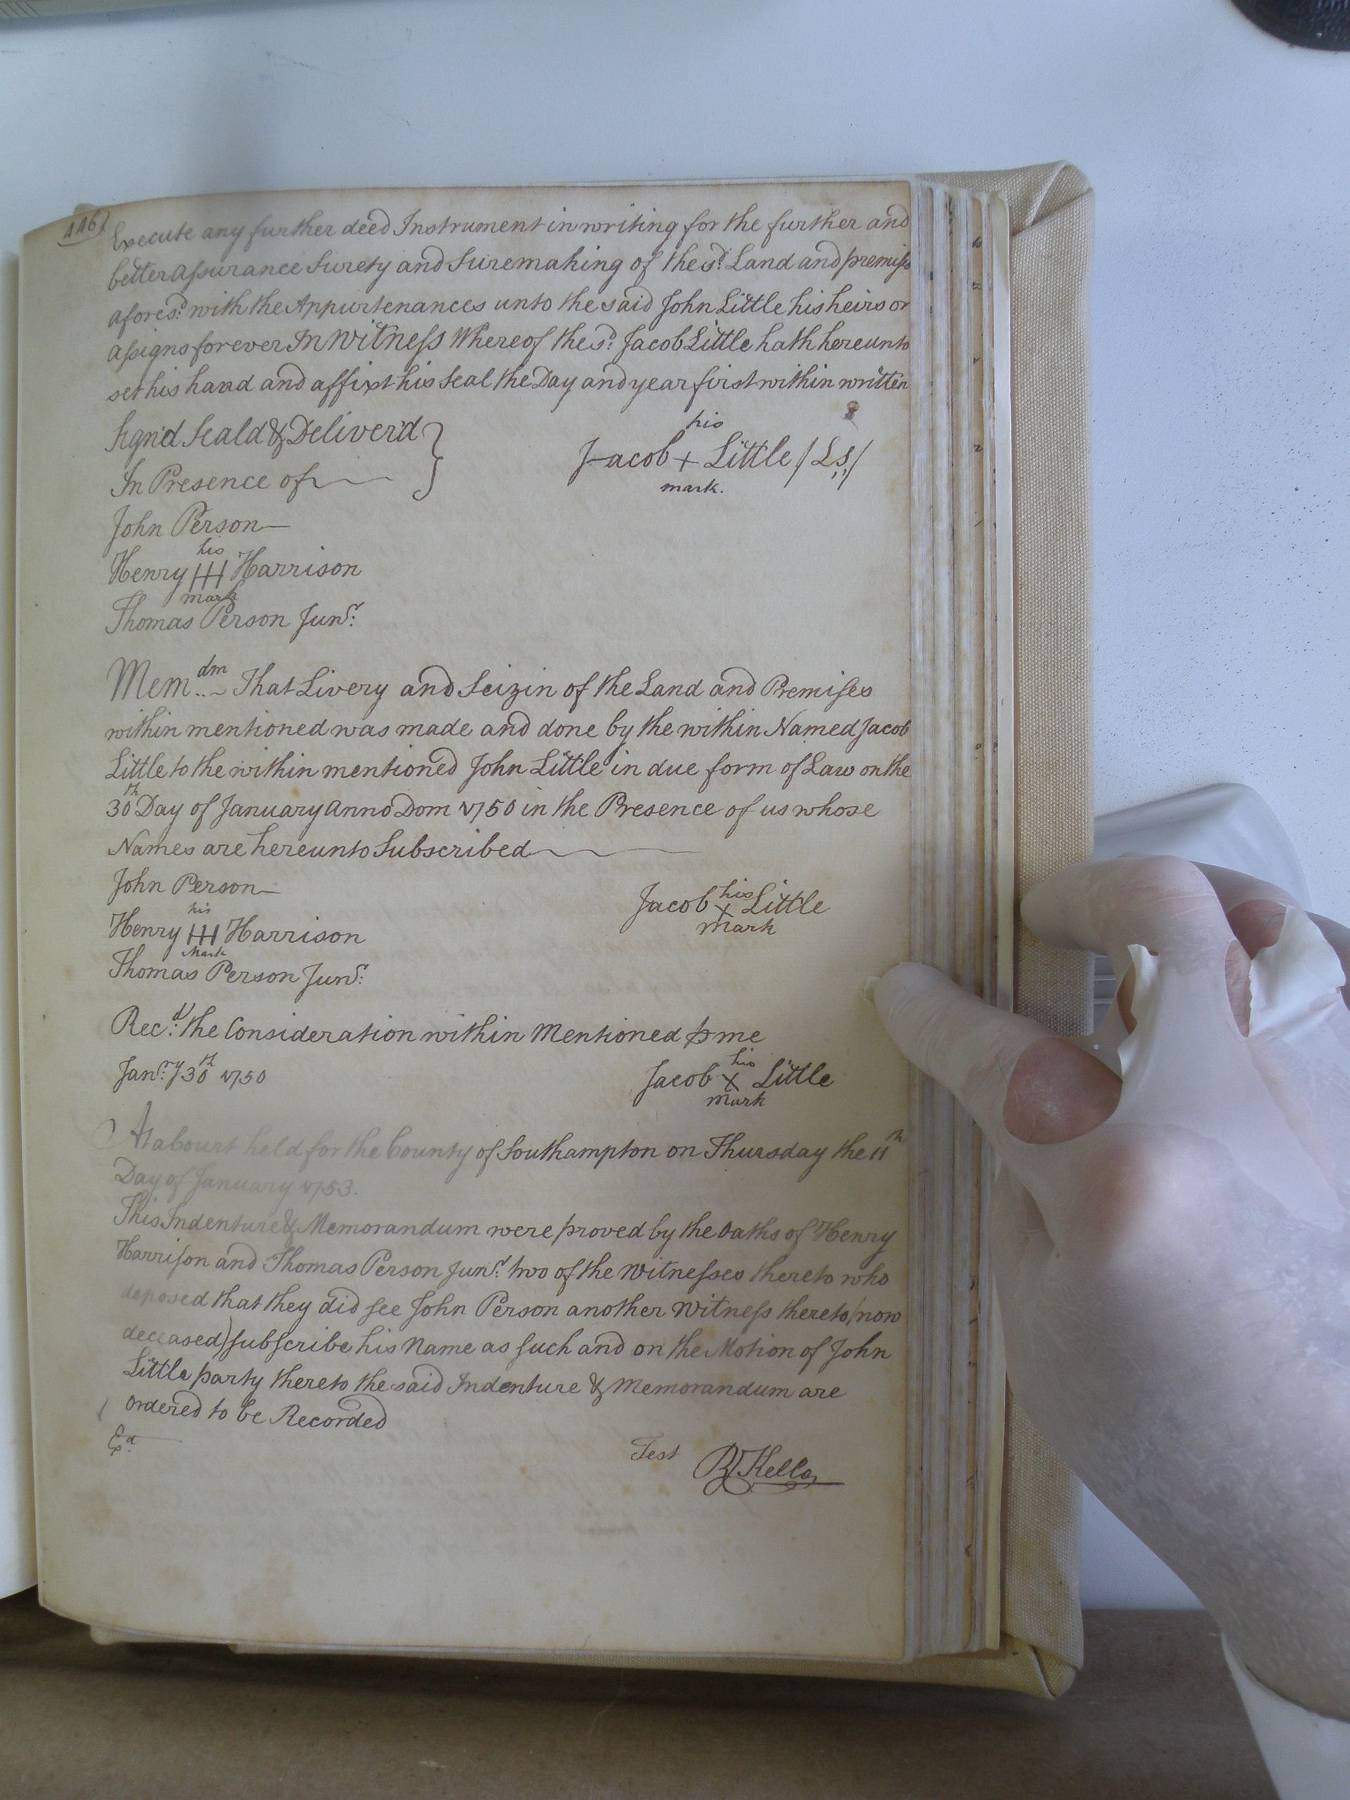 446)
Execute any further deed Instrument in writing for the further and
better assurance Surety and Suremaking of the sd. Land and premiss
afores'd. with the Appurtenances unto the said John Little his heirs or
assigns forever In Witness Whereof the sd. Jacob Little hath hereunto
set his hand and affixt his Seal the Day and year first within written
Sign'd Seald & Deliver'd }
In Presence of
his
Jacob + Little (Ls)
mark.
John Person
his
Henry HH Harrison
mark
Thomas Person Junr.
Memdm That Livery and Seizin of the Land and Premises
within mentioned was made and done by the within Named Jacob
Little to the within mentioned John Little in due form of Law on the
30th Day of January Anno Dom 1750 in the Presence of us whose
Names are hereunto Subscribed
John Person
his
Henry HH Harrison
Mark
Thomas Person Junr.
his
Jacob X Little
Mark
Recd. the Consideration within Mentioned p me
Janry. 30th 1750
his
Jacob X Little
mark
At a Court held for the County of Southampton on Thursday the 11th
Day of January 1753.
This Indenture & Memorandum were proved by the Oaths of Henry
Harrison and Thomas Person Junr. two of the Witnesses thereto who
deposed that they did see John Person another Witness thereto (now
deceased) subscribe his Name as such and on the Motion of John
Little party thereto the said Indenture & Memorandum are
Ordered to be Recorded
Exd.
Test
R Kello